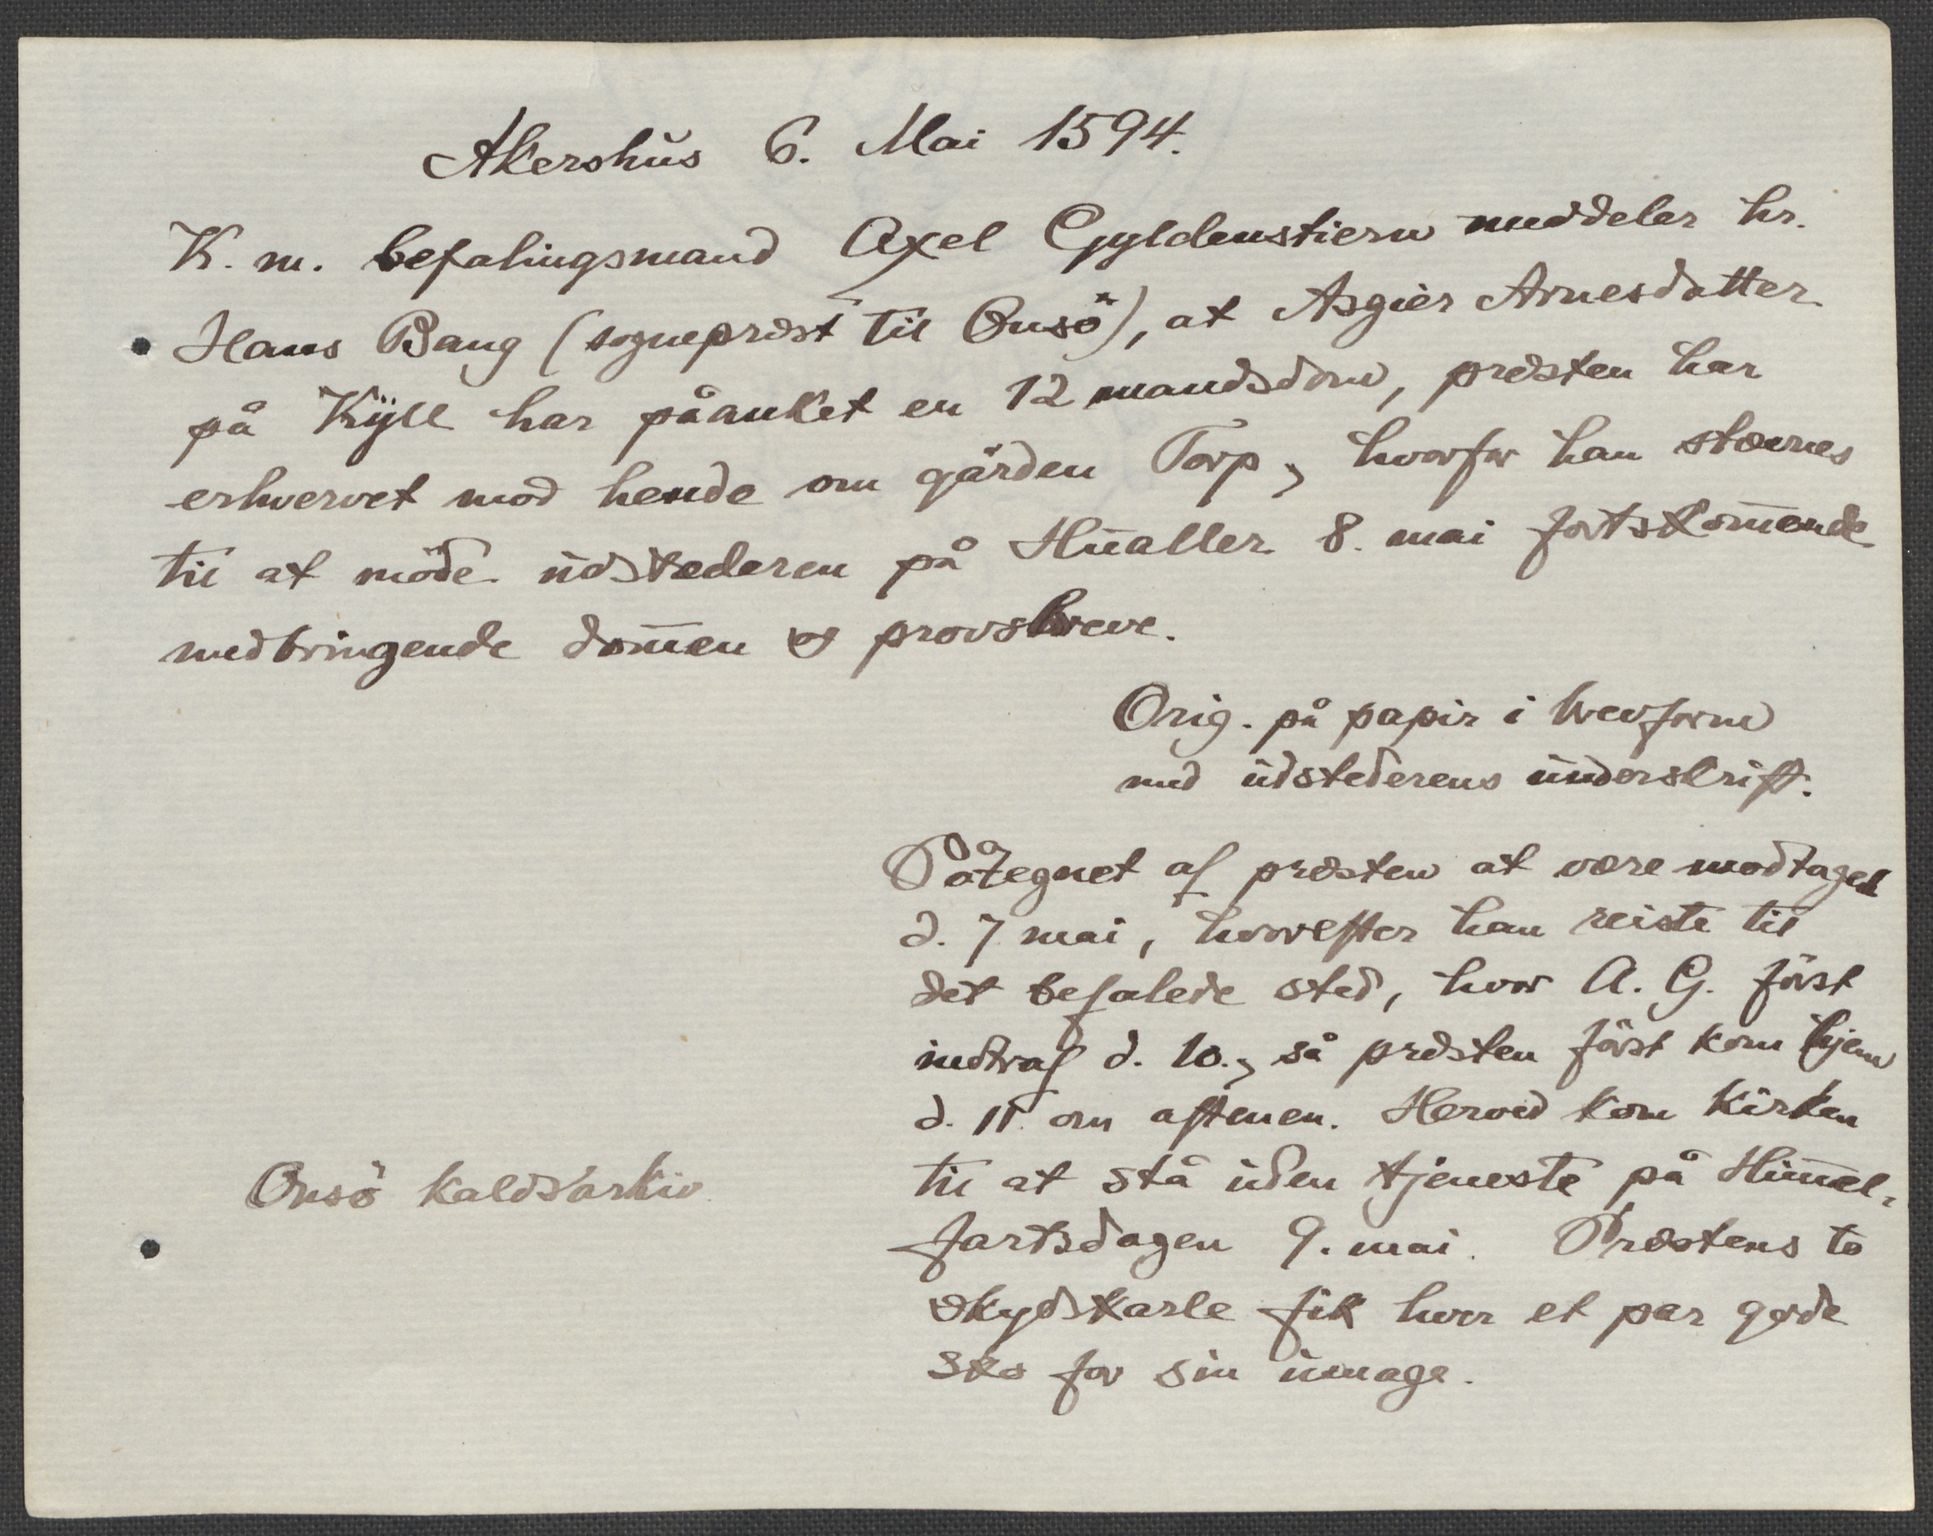 Akershus 6. Mai 1594.
K. m. befalingsmand Axel Gyldenstiern meddeler hr.
Hans Bang (sogneprest til Onsö), at Asgier Arnesdatter
på Kÿll har påanket en 12 mandsdom, presten har
erhvervet mod hende om gården Torp, hvorfor han stævnes
til at möde udstederen på Hualler 8. mai förstkom̅ende
medbringende dom̅en og provsbreve.
Orig. på papir i brevform
med udstederens underskrift.
Påtegnet af presten at være modtaget
d. 7 mai, hvorefter han reiste til
det befalede sted, hvor A. G. först
indtraf d. 10., så presten först kom hjem
d. 11. om aftenen. Herved kom kirken
til at stå uden tjeneste på Him̅el-
fartsdagen 9. mai. Prestens to
skydskarle fik hver et par gode
sko for sin umage.
Onsö kaldsarkiv